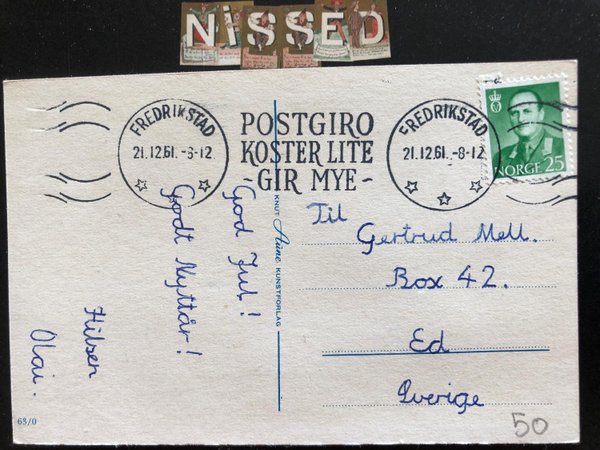 NiSSED
FREDRIKSTAD
21.12.61.-8-12
POSTGIRO
KOSTER LITE
-GIR MYE-
FREDRIKSTAD
21.12.61.-8-12
NORGE 25
God Jul!
Godt Nyttår!
Hilsen
Olai.
KNUT Aune KUNSTFORLAG
Til
Gertrud Mell.
Box 42.
Ed
Sverige
63/0
50